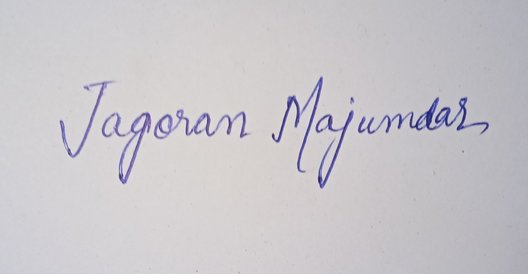 Jagoran Majumdar